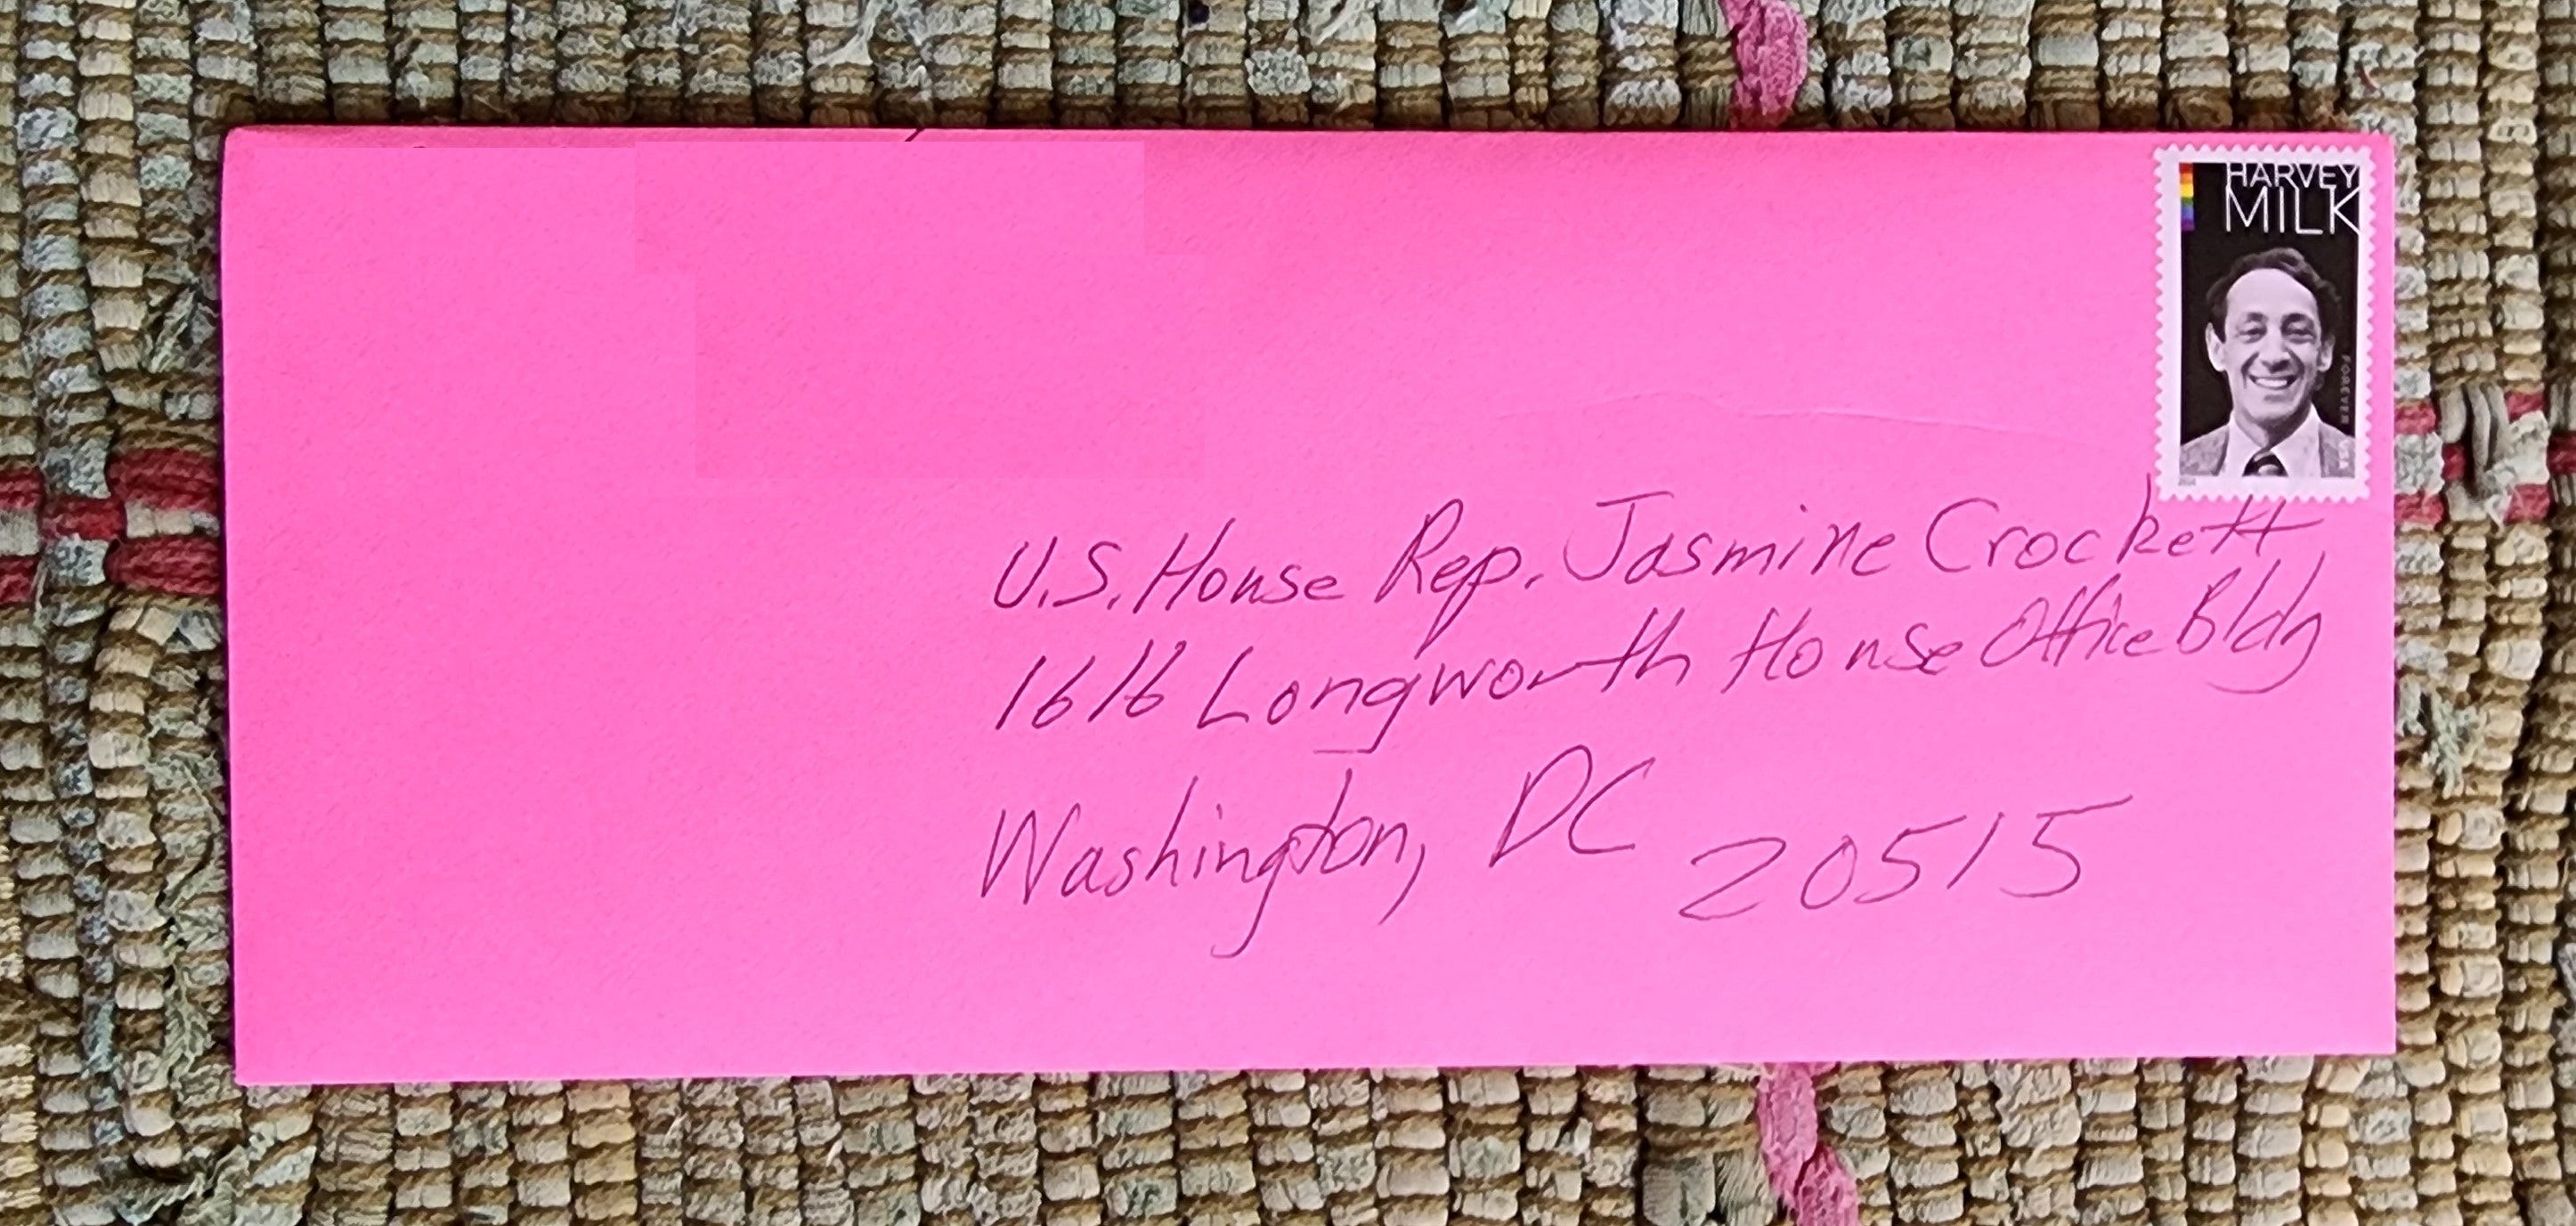 HARVEY
MILK
FOREVER USA
U.S. House Rep. Jasmine Crockett
1616 Longworth House Office Bldg
Washington, DC 20515